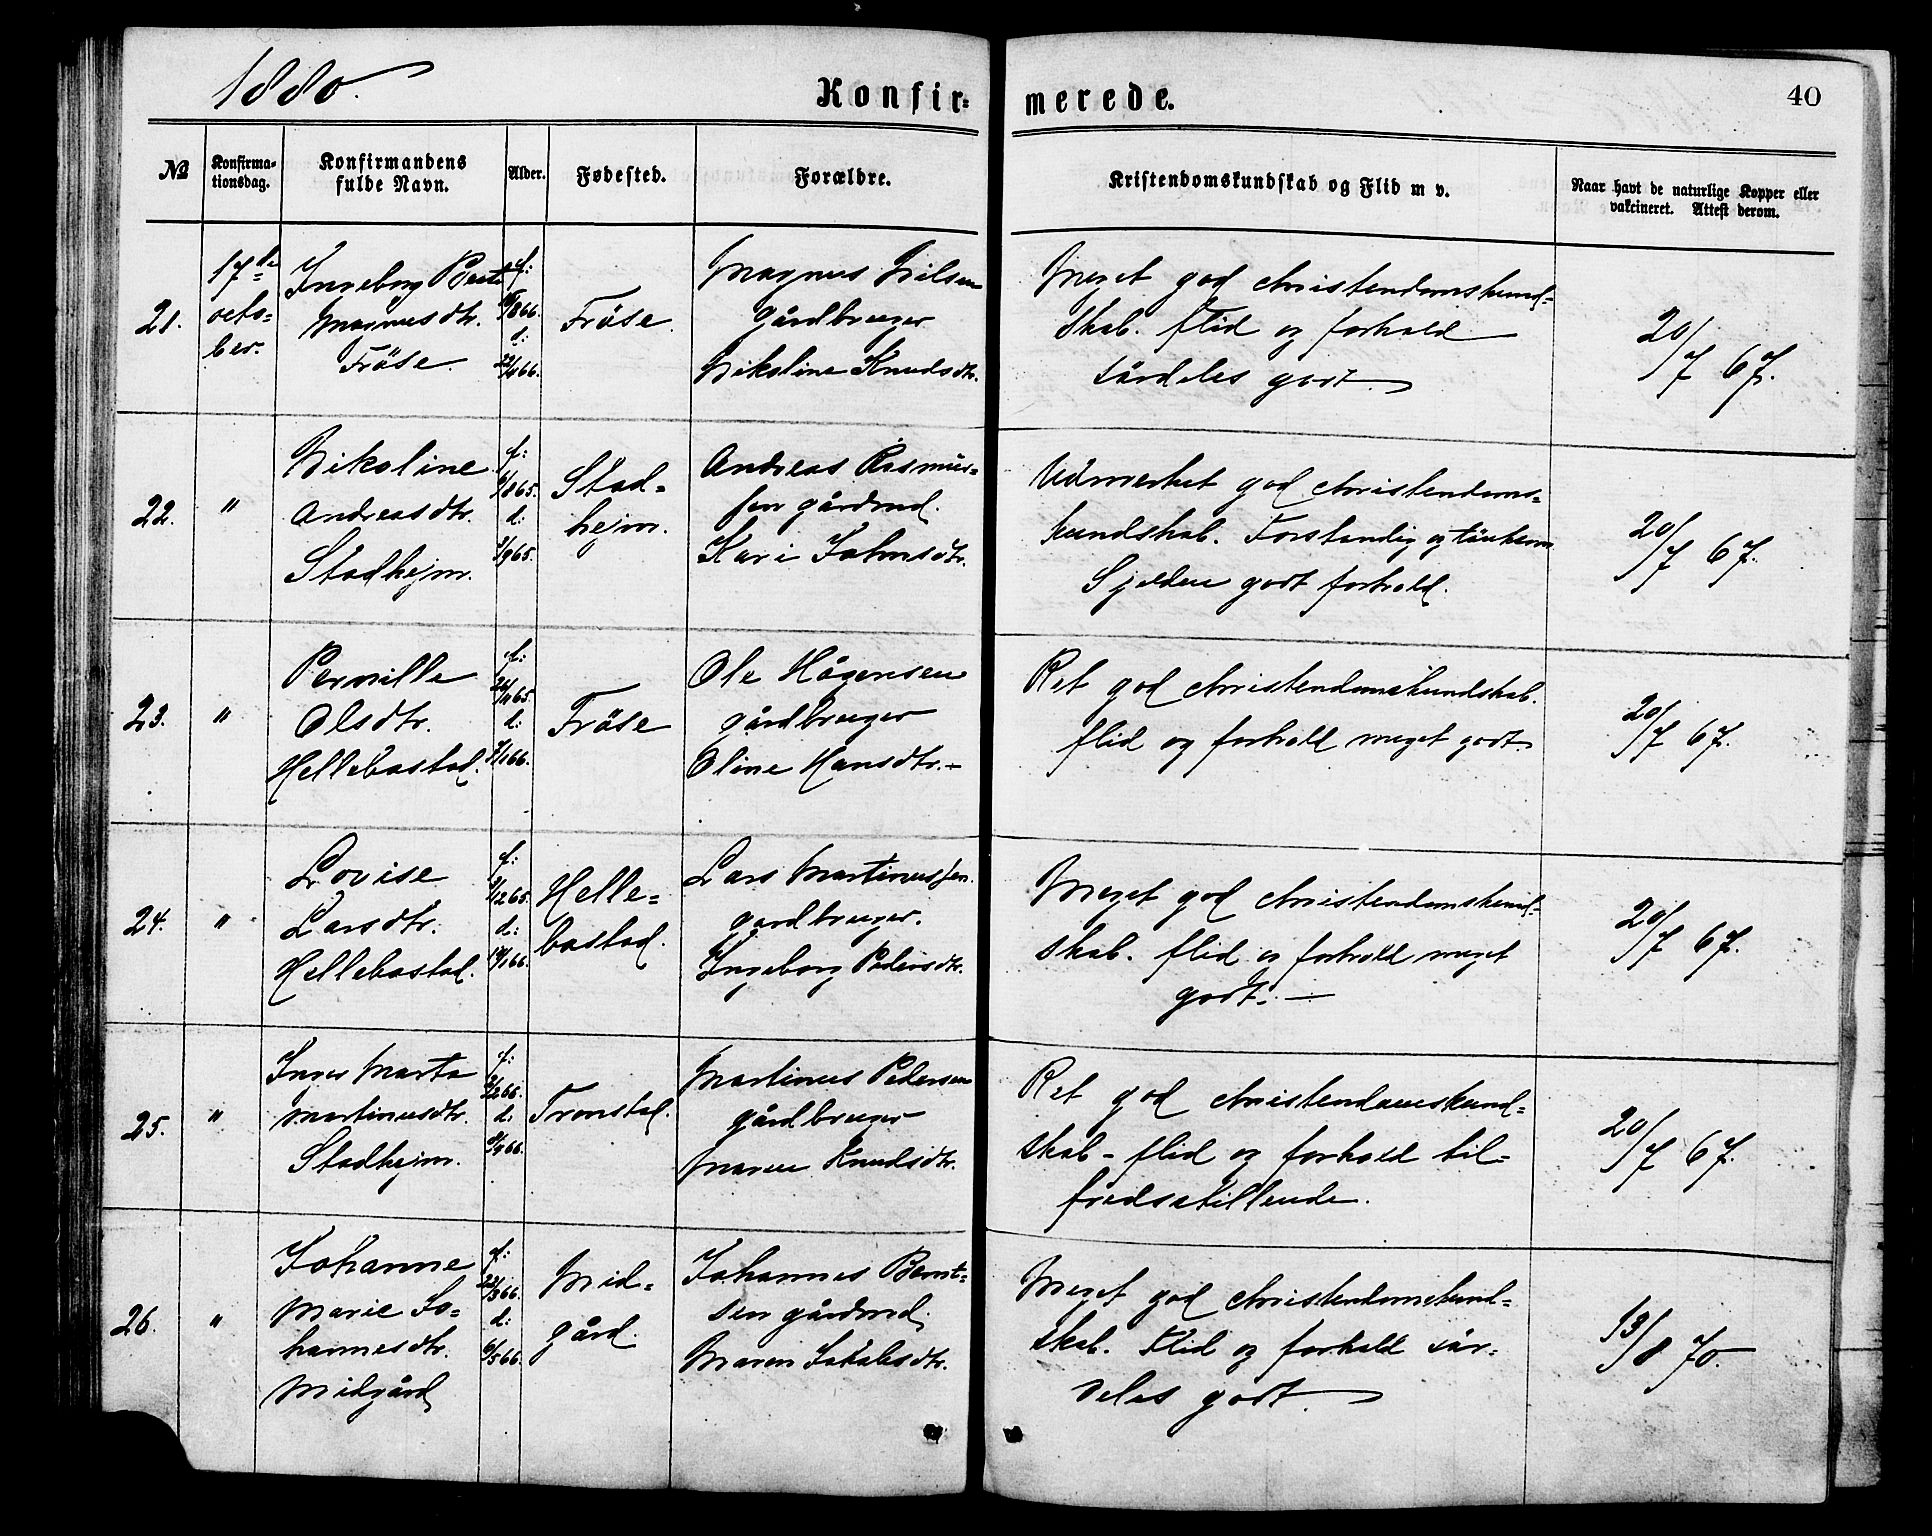 1880.
Konfir-
merede.
40
№
Konfirma-
tionsdag.
Konfirmandens
fulde Navn.
Alder.
Fødested.
Forældre.
Kristendomskundskab og Flid m v.
Naar havt de naturlige Kopper eller
vakcineret. Attest derom.
21.
17de
octo-
ber.
Ingeborg
Magnusdtr.
Fröse.
f:
866.
d:
22/4 66.
Fröse.
Magnus Nilsen
gårdbruger
Nikoline Knudsdtr.
Meget god christendomskund-
skab. flid og forhold
särdeles godt.
20/7 67.
22.
"
Nikoline
Andreasdtr.
Stadhejm.
f:
865.
d:
965.
Stad-
hejm.
Andreas Rasmus-
sen gårdmd.
Kari Johnsdtr.
Udmerket god christendoms-
kundskab. Forstandig og
Sjelden godt forhold.
20/7 67.
23.
"
Pernille
Olsdtr.
Hellebostad.
f:
26/11 65.
d:
7/1 66.
Fröse
Ole Hågensen
gårdbruger
Oline Hansdtr.-
Ret god christendomskundskab.
flid og forhold meget godt.
20/7 67.
24.
"
Lovise
Larsdtr.
Hellebostad.
f:
1265.
d:
166.
Helle-
bostad.
Lars Martinussen.
gardbruger.
Ingeborg Pedersdtr.
Meget god christendomskund-
skab. flid og forhold meget
godt. —
20/7 67.
25.
"
Inger Marta
Martinusdtr.
Stadhejm.
f:
266.
d:
66.
Tronstad.
Martinus Pedersen
gårdbruger
Maren Knudsdtr.
Ret god christendomskund-
skab - flid og forhold til-
fredsstillende.
20/7 67.
26.
"
Johanne
Marie Jo-
hannesdtr.
Midgård
f:
22/3 66.
d:
6/5 66.
Mid-
gård.
Johannes Bernt-
sen gårdmd.
Maren Jakobsdtr.
Meget god christendomskund-
skab. Flid og forhold sär-
deles godt.
13/8 70.